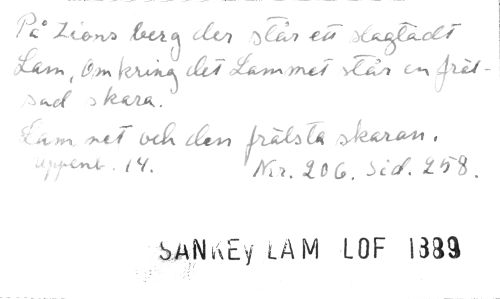 På Zions berg der står ett slagtadt
Lam, Omkring det Lammet står en fräl-
sad skara.
Lammet och den frälsta skaran.
Uppenb. 14. Nr. 206. Sid. 258.
SANKEY LAM LOF 1889